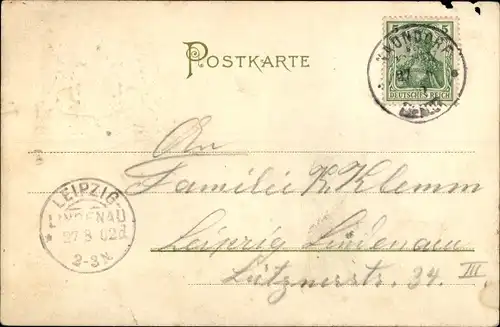 POSTKARTE
5 5
DEUTSCHES REICH
27
An
Familie K. Klemm
Leipzig Lindenau
Lütznerstr. 34. III
LEIPZIG-
LINDENAU
27 8 02
2-3N.